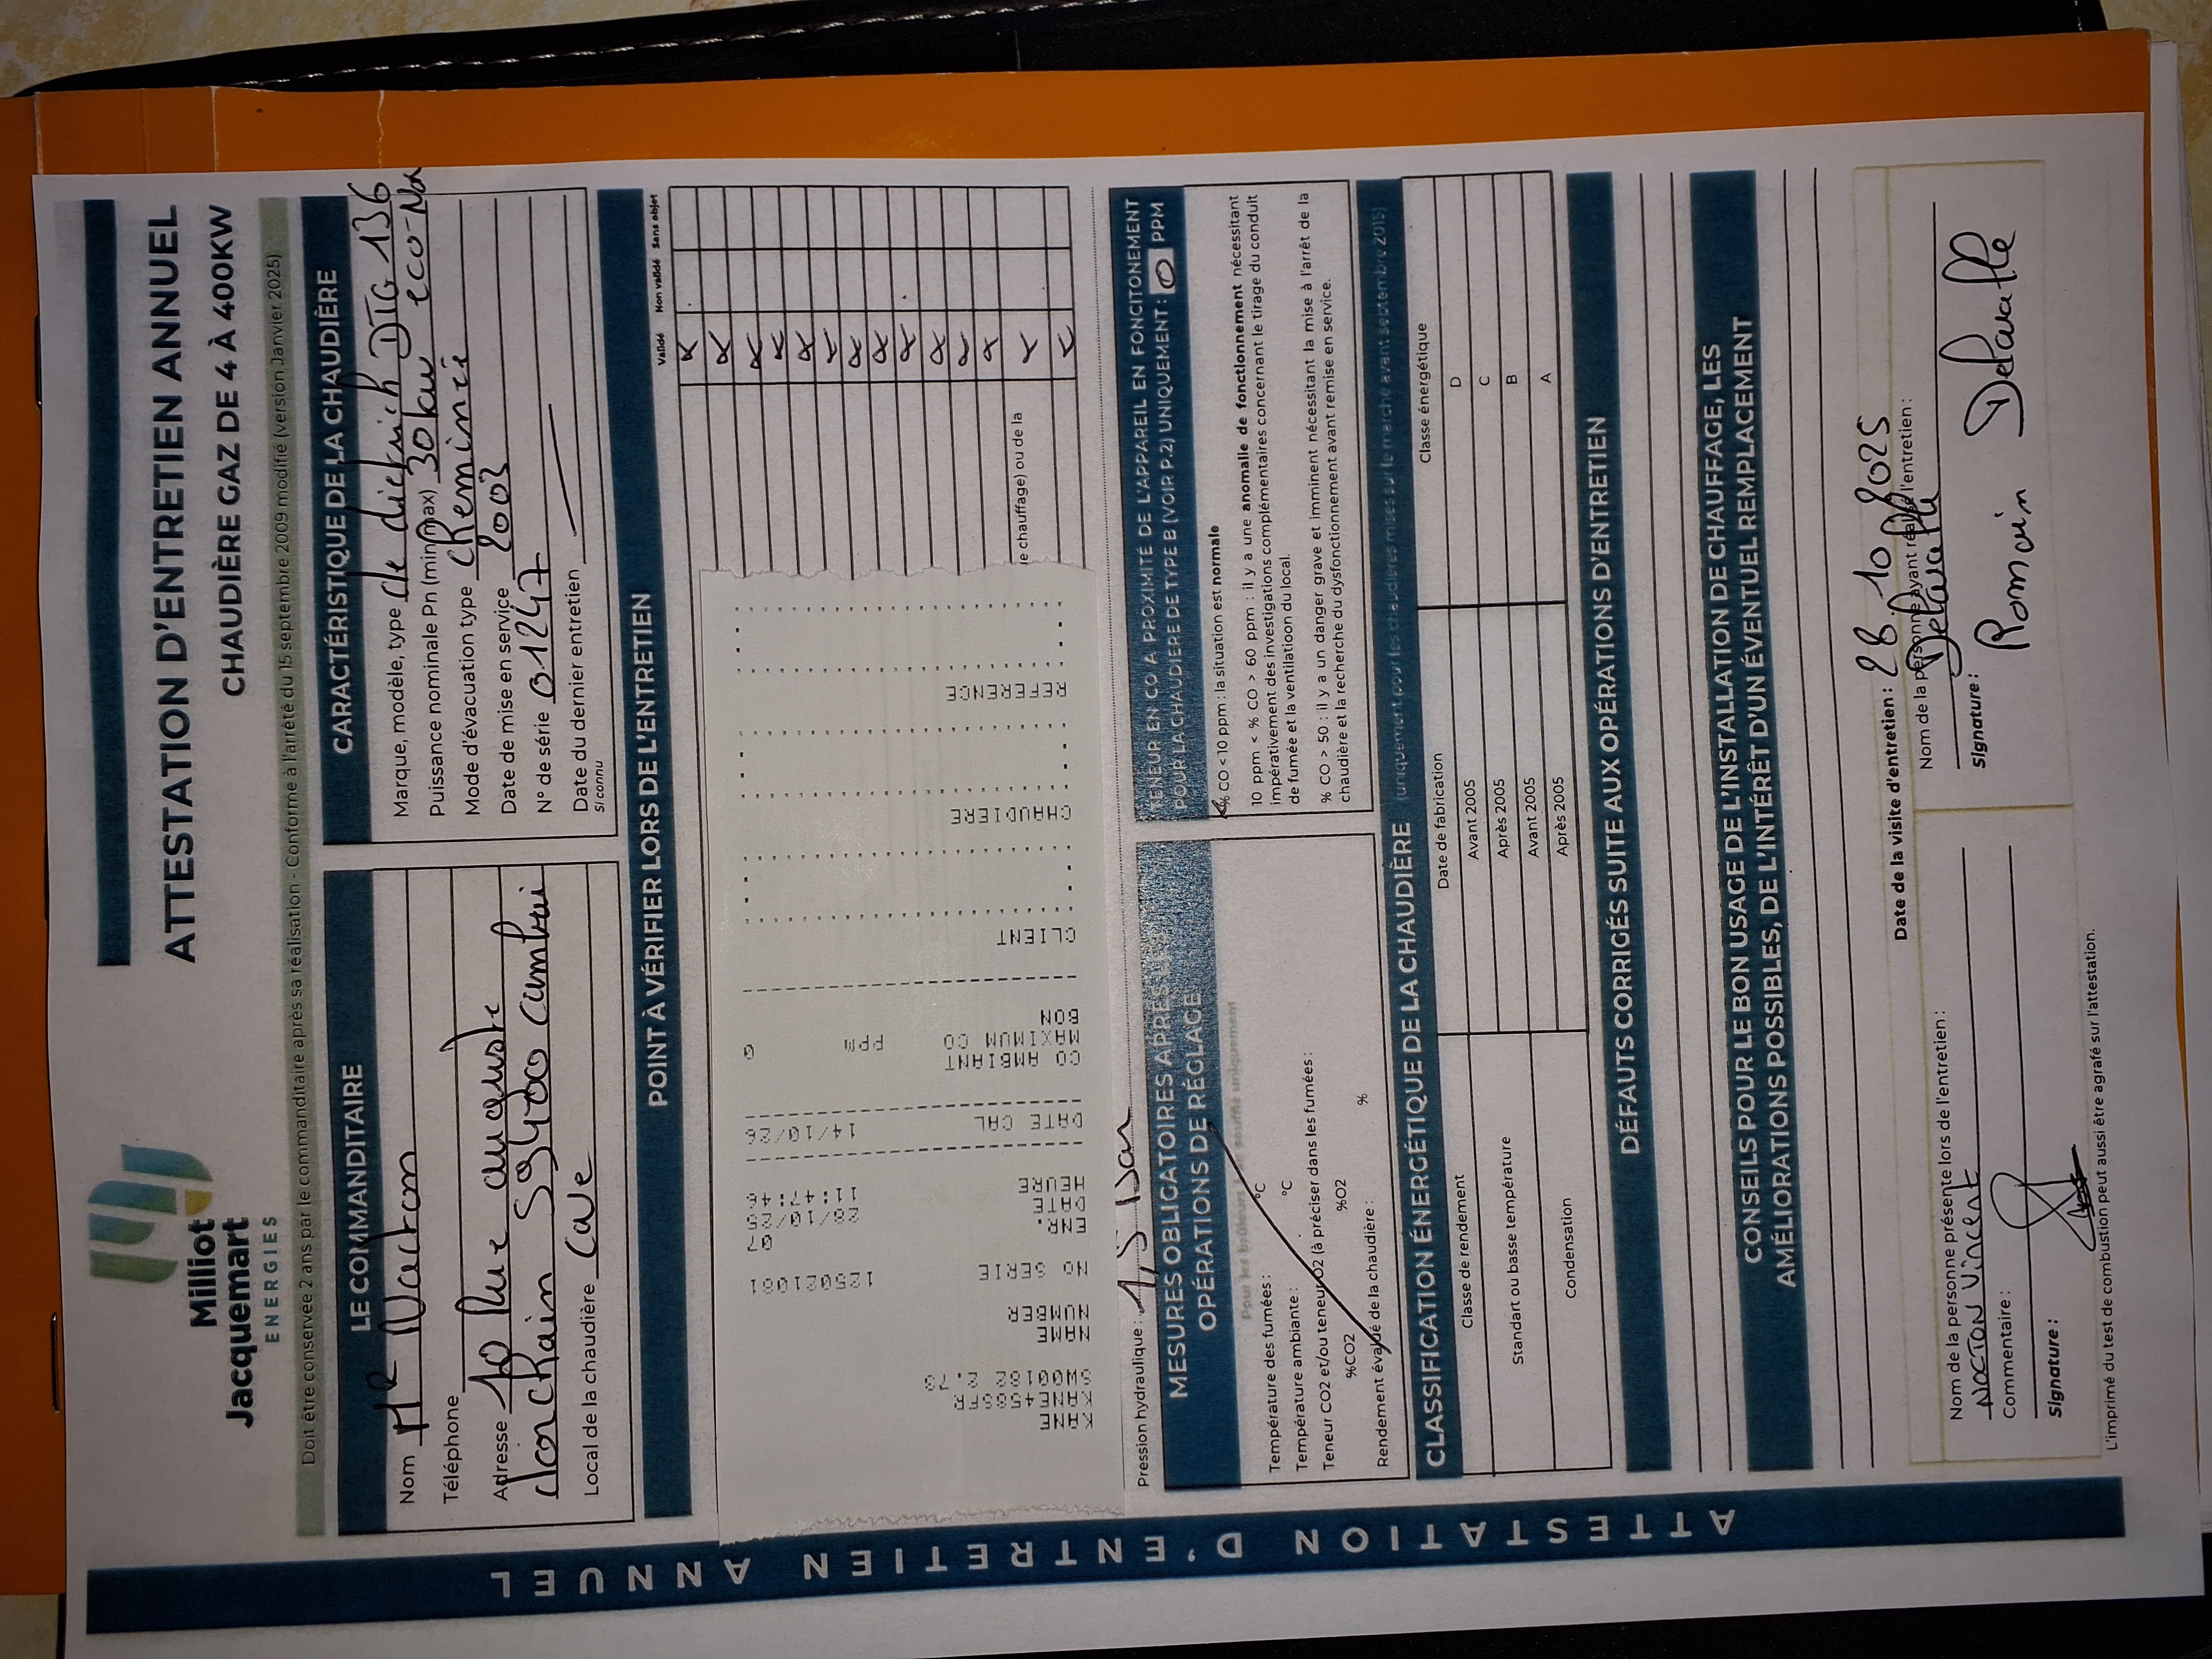 Milliot
Jacquemart
ENERGIES
ATTESTATION D'ENTRETIEN ANNUEL
CHAUDIÈRE GAZ DE 4 À 400KW
Doit être conservée 2 ans par le commanditaire après sa réalisation - Conforme à l'arrêté du 15 septembre 2009 modifié (version Janvier 2025)
LE COMMANDITAIRE
Nom Mr Nocton
Téléphone
Adresse 10 Rue auguste
59400 cambrai
Local de la chaudière Cave
CARACTÉRISTIQUE DE LA CHAUDIÈRE
Marque, modèle, type de dietrich DTG 136
Puissance nominale Pn (min/max) 30 kw eco-Nox
Mode d'évacuation type Cheminée
Date de mise en service 2003
N° de série 01247
Date du dernier entretien
si connu
POINT À VÉRIFIER LORS DE L'ENTRETIEN
Validé Non validé Sans objet
KANE
KANE458SFR
SW00182 2.73
NAME
NUMBER
NO SERIE 125021061
ENR. 07
DATE 28/10/25
HEURE 11:47:46
DATE CAL 14/10/26
CO AMBIANT
MAXIMUM CO PPM 0
BON
CLIENT
CHAUDIERE
REFERENCE
e chauffage) ou de la
Pression hydraulique : 1,5 bar
MESURES OBLIGATOIRES APRÈS LES
OPÉRATIONS DE RÉGLAGE
Pour les brûleurs soufflé uniquement
Température des fumées : °C
Température ambiante : °C
Teneur CO2 et/ou teneur O2 (à préciser dans les fumées :
%CO2 %O2
Rendement évalué de la chaudière : %
TENEUR EN CO À PROXIMITÉ DE L'APPAREIL EN FONCITONEMENT
POUR LA CHAUDIÈRE DE TYPE B (VOIR P.2) UNIQUEMENT : 0 PPM
% CO < 10 ppm : la situation est normale
10 ppm < % CO > 60 ppm : il y a une anomalie de fonctionnement nécessitant
impérativement des investigations complémentaires concernant le tirage du conduit
de fumée et la ventilatioon du local.
% CO > 50 : il y a un danger grave et imminent nécessitant la mise à l'arrêt de la
chaudière et la recherche du dysfonctionnement avant remise en service.
CLASSIFICATION ÉNERGÉTIQUE DE LA CHAUDIÈRE (uniquement pour les chaudières mises sur le marche avant septembre 2015)
Classe de rendement Date de fabrication Classe énergétique
Standart ou basse température Avant 2005 D
Après 2005 C
Condensation Avant 2005 B
Après 2005 A
DÉFAUTS CORRIGÉS SUITE AUX OPÉRATIONS D'ENTRETIEN
CONSEILS POUR LE BON USAGE DE L'INSTALLATION DE CHAUFFAGE, LES
AMÉLIORATIONS POSSIBLES, DE L'INTÉRÊT D'UN ÉVENTUEL REMPLACEMENT
Date de la visite d'entretien : 28 10 2025
Nom de la personne présente lors de l'entretien :
NOCTON Vincent
Commentaire :
Signature :
Nom de la personne ayant réalisé l'entretien :
Delaralle
Signature :
Romain Delaralle
L'imprimé du test de combustion peut aussi être agrafé sur l'attestation.
ATTESTATION D'ENTRETIEN ANNUEL